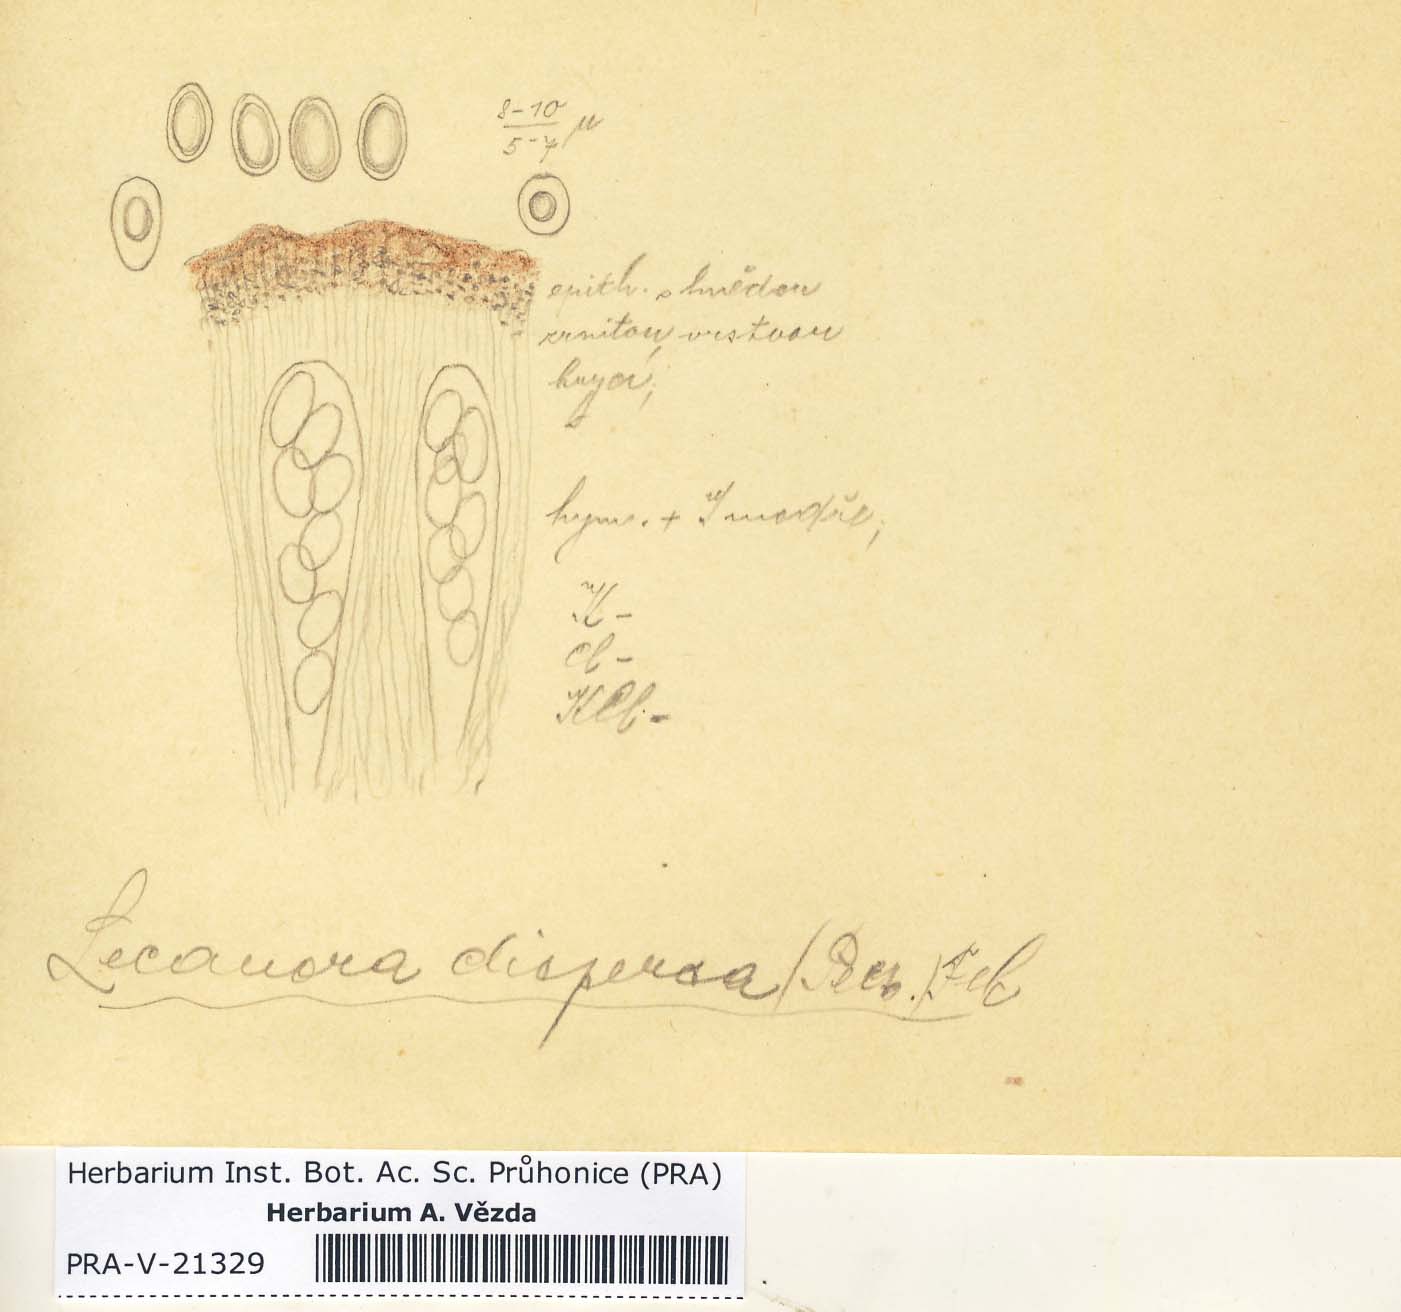 8-10
5-7 μ
epith. s hnědou
zrnitou vrstvou
hyme. + J modře;
K -
Cl -
KCl. -
Lecanora dispersa (Pers.) Flk
Herbarium Inst. Bot. Ac. Sc. Průhonice (PRA)
Herbarium A. Vězda
PRA-V-21329